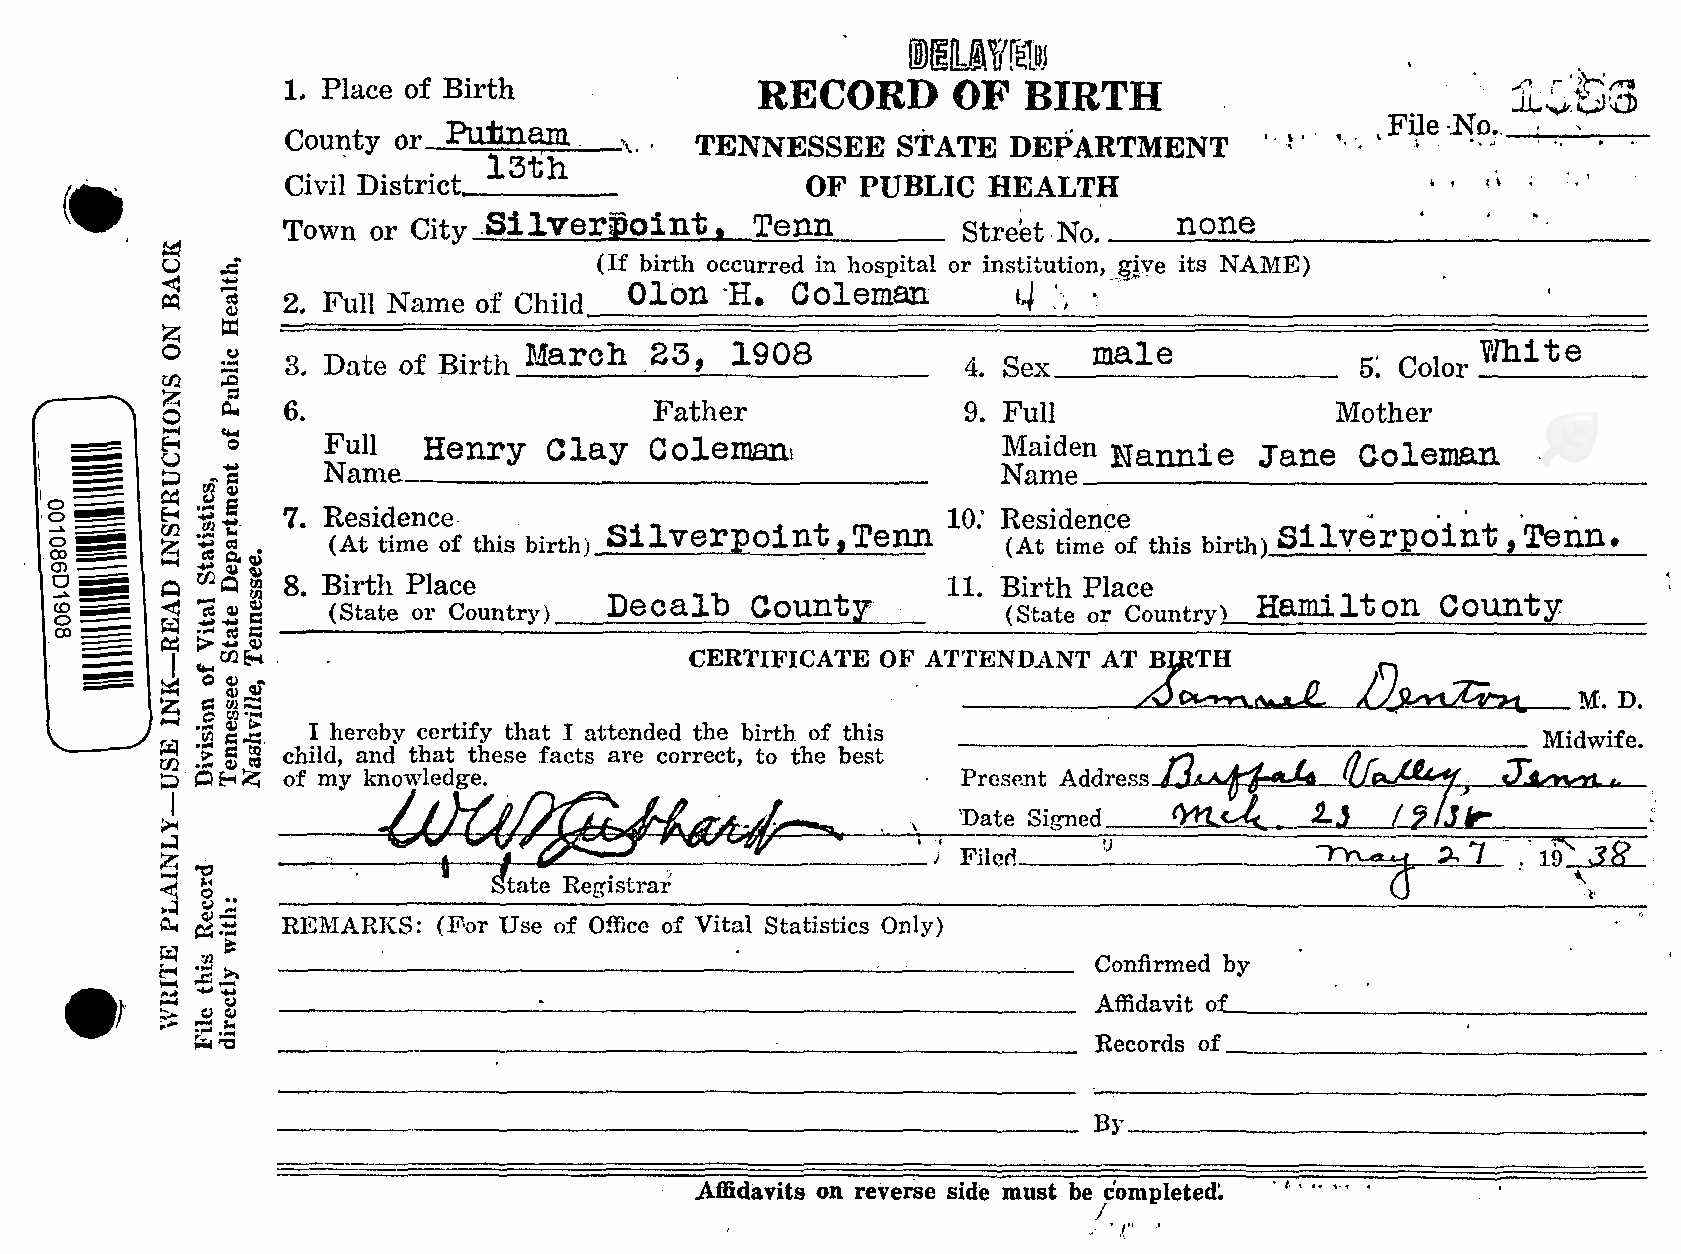 DELAYED
1. Place of Birth RECORD OF BIRTH
County or Putnam TENNESSEE STATE DEPARTMENT File No. 1086
Civil District 13th OF PUBLIC HEALTH
Town or City Silverpoint, Tenn Street No. none
(If birth occurred in hospital or institution, give its NAME)
2. Full Name of Child Olon H. Coleman 4
3. Date of Birth March 23, 1908 4. Sex male 5. Color White
6. Father 9. Full Mother
Full Name Henry Clay Coleman Maiden Name Nannie Jane Coleman
7. Residence 10. Residence
(At time of this birth) Silverpoint,Tenn (At time of this birth) Silverpoint,Tenn.
8. Birth Place 11. Birth Place
(State or Country) Decalb County (State or Country) Hamilton County
CERTIFICATE OF ATTENDANT AT BIRTH
Samuel Denton M. D.
I hereby certify that I attended the birth of this Midwife.
child, and that these facts are correct, to the best
of my knowledge. Present Address Buffalo Valley, Tenn.
Date Signed Mch. 23 1938
Filed May 27 1938
State Registrar
REMARKS: (For Use of Office of Vital Statistics Only)
Confirmed by
Affidavit of
Records of
By
Affidavits on reverse side must be completed.
WRITE PLAINLY—USE INK—READ INSTRUCTIONS ON BACK
File this Record Division of Vital Statistics,
directly with: Tennessee State Department of Public Health,
Nashville, Tennessee.
001086D1908